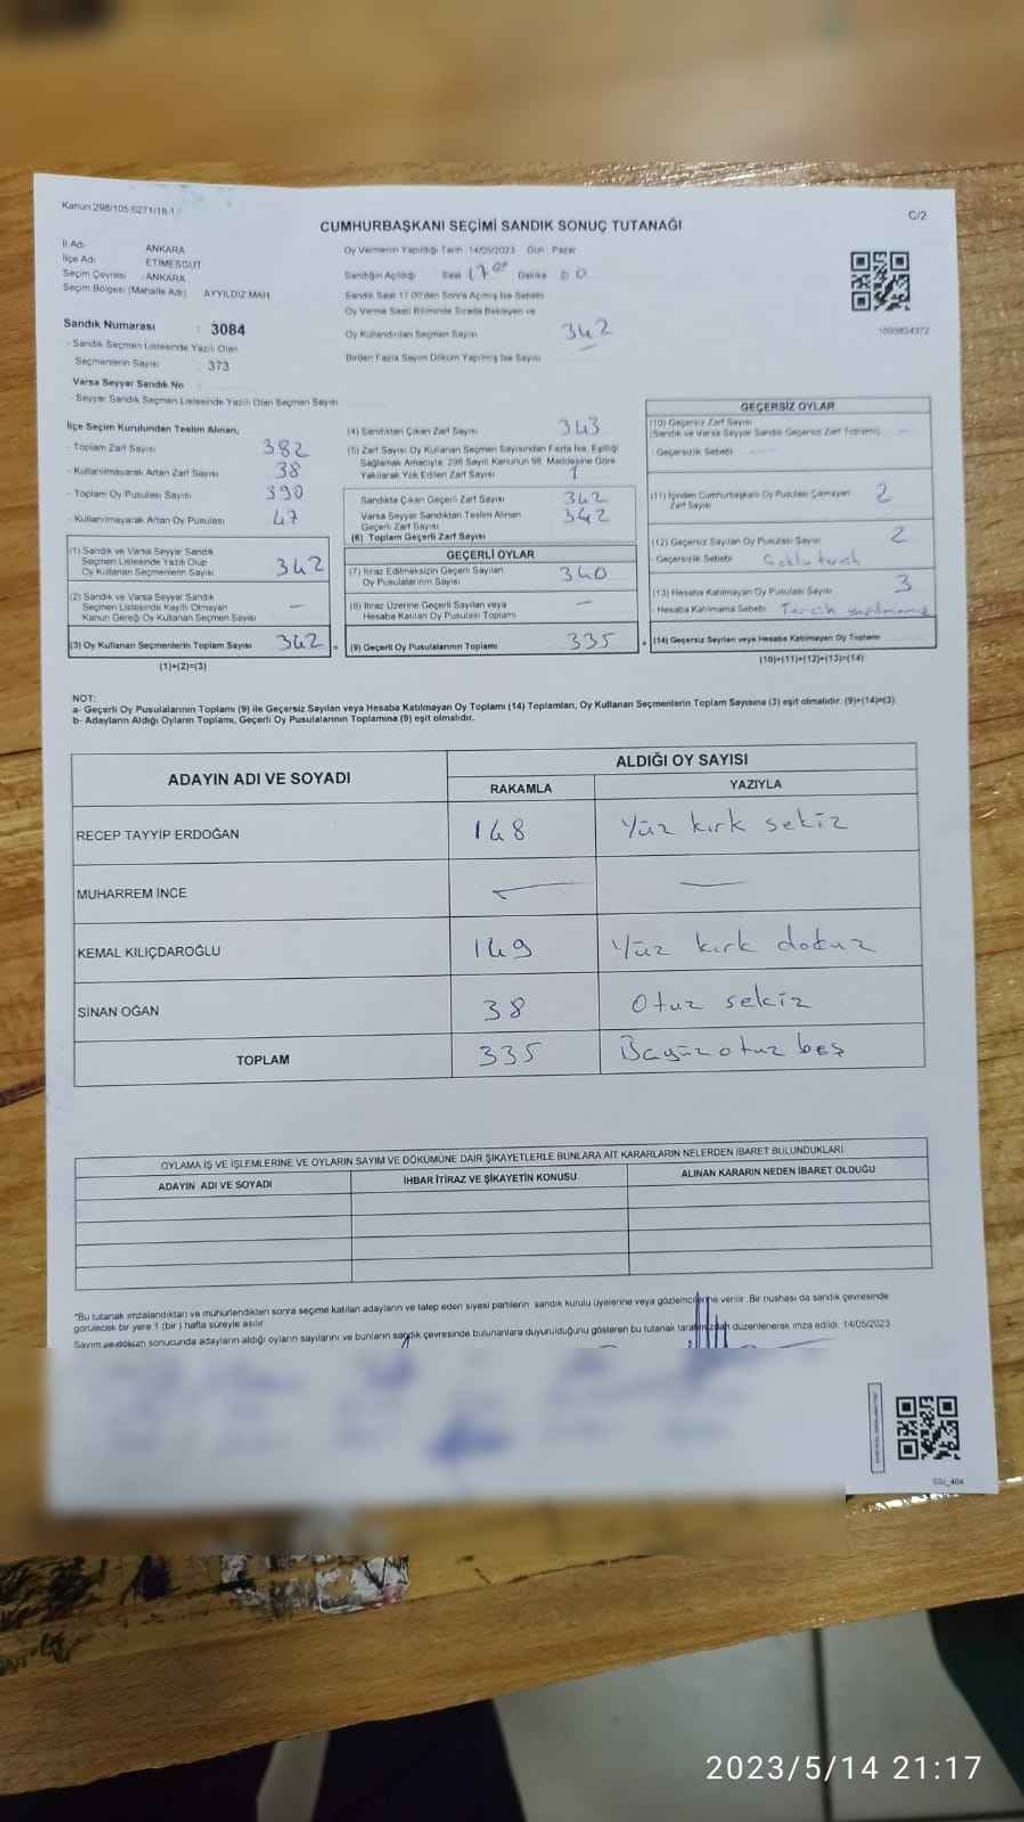 Kanun:298/105-6271/18-1
C/2
CUMHURBAŞKANI SEÇİMİ SANDIK SONUÇ TUTANAĞI
İl Adı ANKARA
İlçe Adı ETİMESGUT
Seçim Çevresi : ANKARA
Seçim Bölgesi (Mahalle Adı) AYYILDIZ MAH
Sandık Numarası : 3084
- Sandık Seçmen Listesinde Yazılı Olan
Seçmenlerin Sayısı : 373
Varsa Seyyar Sandık No
- Seyyar Sandık Seçmen Listesinde Yazılı Olan Seçmen Sayısı
Oy Vermenin Yapıldığı Tarih 14/05/2023 Gün : Pazar
Sandığın Açıldığı Saat 17 00 Dakika 00
Sandık Saat 17.00'den Sonra Açılmış İse Sebebi
Oy Verme Saati Bitiminde Sırada Bekleyen ve
Oy Kullandırılan Seçmen Sayısı 342
Birden Fazla Sayım Döküm Yapılmış İse Sayısı
İlçe Seçim Kurulundan Teslim Alınan;
- Toplam Zarf Sayısı 382
- Kullanılmayarak Artan Zarf Sayısı 38
- Toplam Oy Pusulası Sayısı 390
- Kullanılmayarak Artan Oy Pusulası 47
(1) Sandık ve Varsa Seyyar Sandık
Seçmen Listesinde Yazılı Olup
Oy Kullanan Seçmenlerin Sayısı 342
(2) Sandık ve Varsa Seyyar Sandık
Seçmen Listesinde Kayıtlı Olmayan
Kanun Gereği Oy Kullanan Seçmen Sayısı –
(3) Oy Kullanan Seçmenlerin Toplam Sayısı 342
(1)+(2)=(3)
(4) Sandıktan Çıkan Zarf Sayısı 343
(5) Zarf Sayısı Oy Kullanan Seçmen Sayısından Fazla İse, Eşitliği
Sağlamak Amacıyla, 298 Sayılı Kanunun 98. Maddesine Göre
Yakılarak Yok Edilen Zarf Sayısı 1
Sandıkta Çıkan Geçerli Zarf Sayısı 342
Varsa Seyyar Sandıktan Teslim Alınan
Geçerli Zarf Sayısı 342
(6) Toplam Geçerli Zarf Sayısı
GEÇERLİ OYLAR
(7) İtiraz Edilmeksizin Geçerli Sayılan
Oy Pusulalarının Sayısı 340
(8) İtiraz Üzerine Geçerli Sayılan veya
Hesaba Katılan Oy Pusulası Toplamı –
(9) Geçerli Oy Pusulalarının Toplamı 335
GEÇERSİZ OYLAR
(10) Geçersiz Zarf Sayısı
(Sandık ve Varsa Seyyar Sandık Geçersiz Zarf Toplamı)
- Geçersizlik Sebebi
(11) İçinden Cumhurbaşkanı Oy Pusulası Çıkmayan
Zarf Sayısı 2
(12) Geçersiz Sayılan Oy Pusulası Sayısı 2
- Geçersizlik Sebebi
(13) Hesaba Katılmayan Oy Pusulası Sayısı 3
- Hesaba Katılmama Sebebi Tercih yapılmamış
(14) Geçersiz Sayılan veya Hesaba Katılmayan Oy Toplamı
(10)+(11)+(12)+(13)=(14)
NOT:
a- Geçerli Oy Pusulalarının Toplamı (9) ile Geçersiz Sayılan veya Hesaba Katılmayan Oy Toplamı (14) Toplamları, Oy Kullanan Seçmenlerin Toplam Sayısına (3) eşit olmalıdır. (9)+(14)=(3)
b- Adayların Aldığı Oyların Toplamı, Geçerli Oy Pusulalarının Toplamına (9) eşit olmalıdır.
ADAYIN ADI VE SOYADI
ALDIĞI OY SAYISI
RAKAMLA YAZIYLA
RECEP TAYYİP ERDOĞAN 148 Yüz kırk sekiz
MUHARREM İNCE – –
KEMAL KILIÇDAROĞLU 149 Yüz kırk dokuz
SİNAN OĞAN 38 Otuz sekiz
TOPLAM 335 otuz beş
OYLAMA İŞ VE İŞLEMLERİNE VE OYLARIN SAYIM VE DÖKÜMÜNE DAİR ŞİKAYETLERLE BUNLARA AİT KARARLARIN NELERDEN İBARET BULUNDUKLARI
ADAYIN ADI VE SOYADI İHBAR İTİRAZ VE ŞİKAYETİN KONUSU ALINAN KARARIN NEDEN İBARET OLDUĞU
*Bu tutanak imzalandıktan ve mühürlendikten sonra seçime katılan adayların ve talep eden siyasi partilerin sandık kurulu üyelerine veya gözlemcilerine verilir. Bir nüshası da sandık çevresinde
görülecek bir yere 1 (bir) hafta süreyle asılır
Sayım ve döküm sonucunda adayların aldığı oyların sayılarını ve bunların sandık çevresinde bulunanlara duyurulduğunu gösteren bu tutanak tarafımızdan düzenlenerek imza edildi. 14/05/2023
2023/5/14 21:17